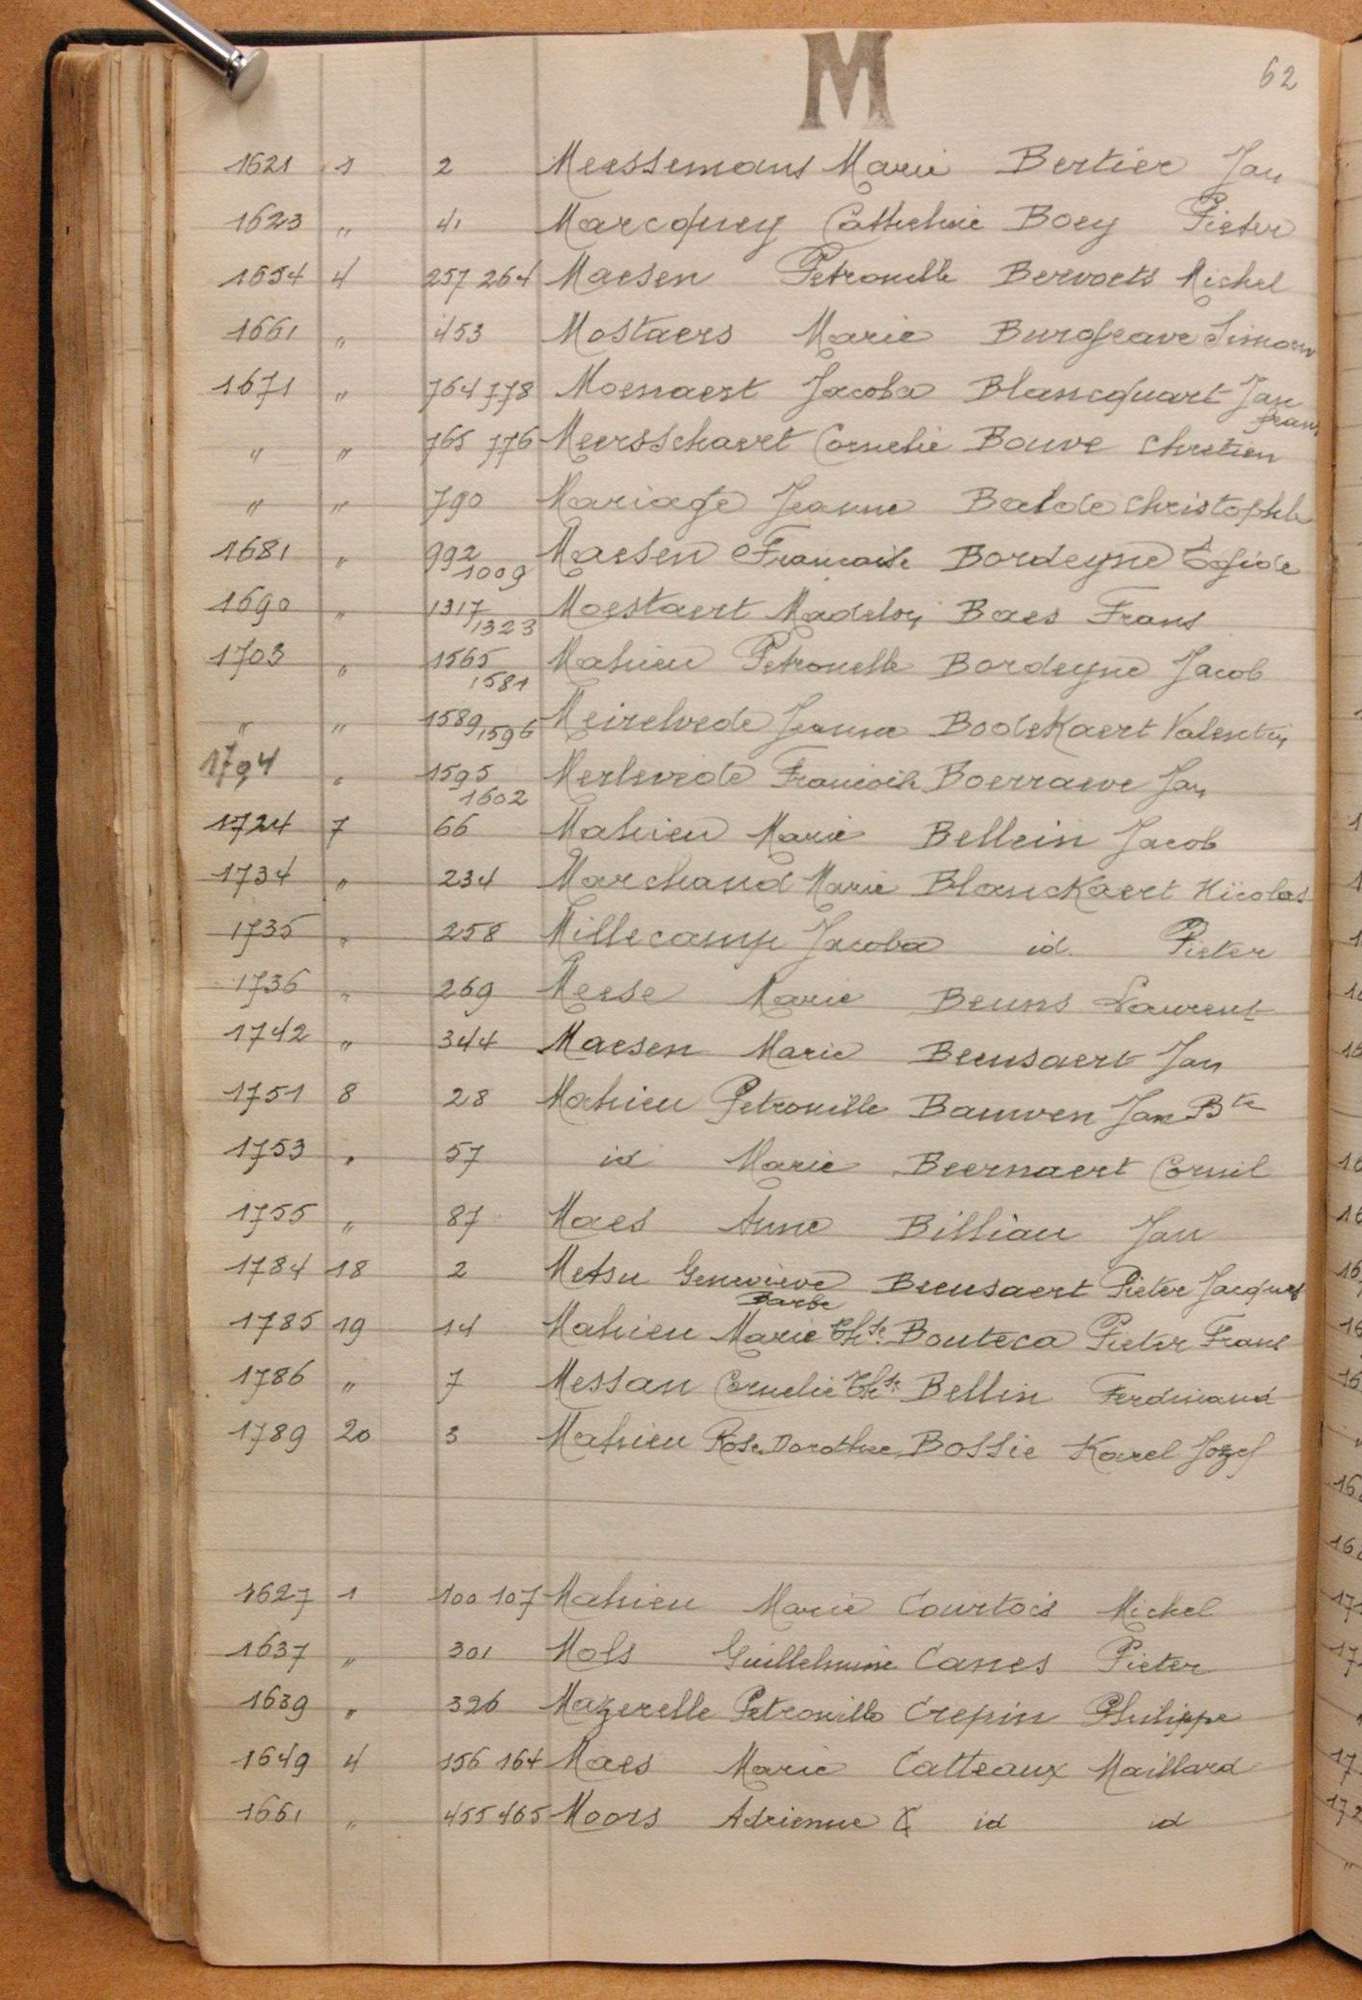 M
62
1621 1 2 Meessemans Marie Bertier Jan
1623 " 41 Marcquey Catheline Boey Pieter
1654 4 257 264 Maesen Petronelle Bervoets Michel
1661 " 453 Mostaers Marie Burggeave Simoen
1671 " 764 778 Moenaert Jacoba Blancquart Jan Frans
" " 765 776 Meersschaert Cornelie Bouve Chretien
" " 790 Mariage Jeanne Balde Christophle
1681 " 992 1009 Maesen Francoise Bordeyne Egide
1690 " 1317 1323 Moestaert Madelon Baes Frans
1703 " 1565 1581 Mahieu Petronelle Bordeyne Jacob
" " 1589 1596 Meirelvede Jeanne Bodekaert Valentin
1794 " 1595 1602 Merlevede Francoise Boerraeve Jan
1724 7 66 Mahieu Marie Bellein Jacob
1734 " 234 Marchand Marie Blanckaert Nicolas
1735 " 258 Millecamp Jacoba id Pieter
1736 " 269 Meese Marie Beuns Laurent
1742 " 344 Maesen Marie Beeusaert Jan
1751 8 28 Mahieu Petronille Bauwen Jan Bte
1753 " 57 id Marie Beernaert Cornil
1755 " 87 Maes Anne Billiau Jan
1784 18 2 Metsu Genevieve Barbe Beeusaert Pieter Jacques
1785 19 14 Mahieu Marie Thse Bouteca Pieter Frans
1786 " 7 Messan Cornelie Thse Bellin Ferdinand
1789 20 3 Mahieu Rose Dorothee Bossie Karel Jozef
1627 1 100 107 Mahieu Marie Courtois Michel
1637 " 301 Mols Guillelmine Canes Pieter
1639 " 326 Mazerelle Petronille Crepin Philippe
1649 4 156 164 Maes Marie Catteaux Maillard
1661 " 455 465 Moors Adrienne id id